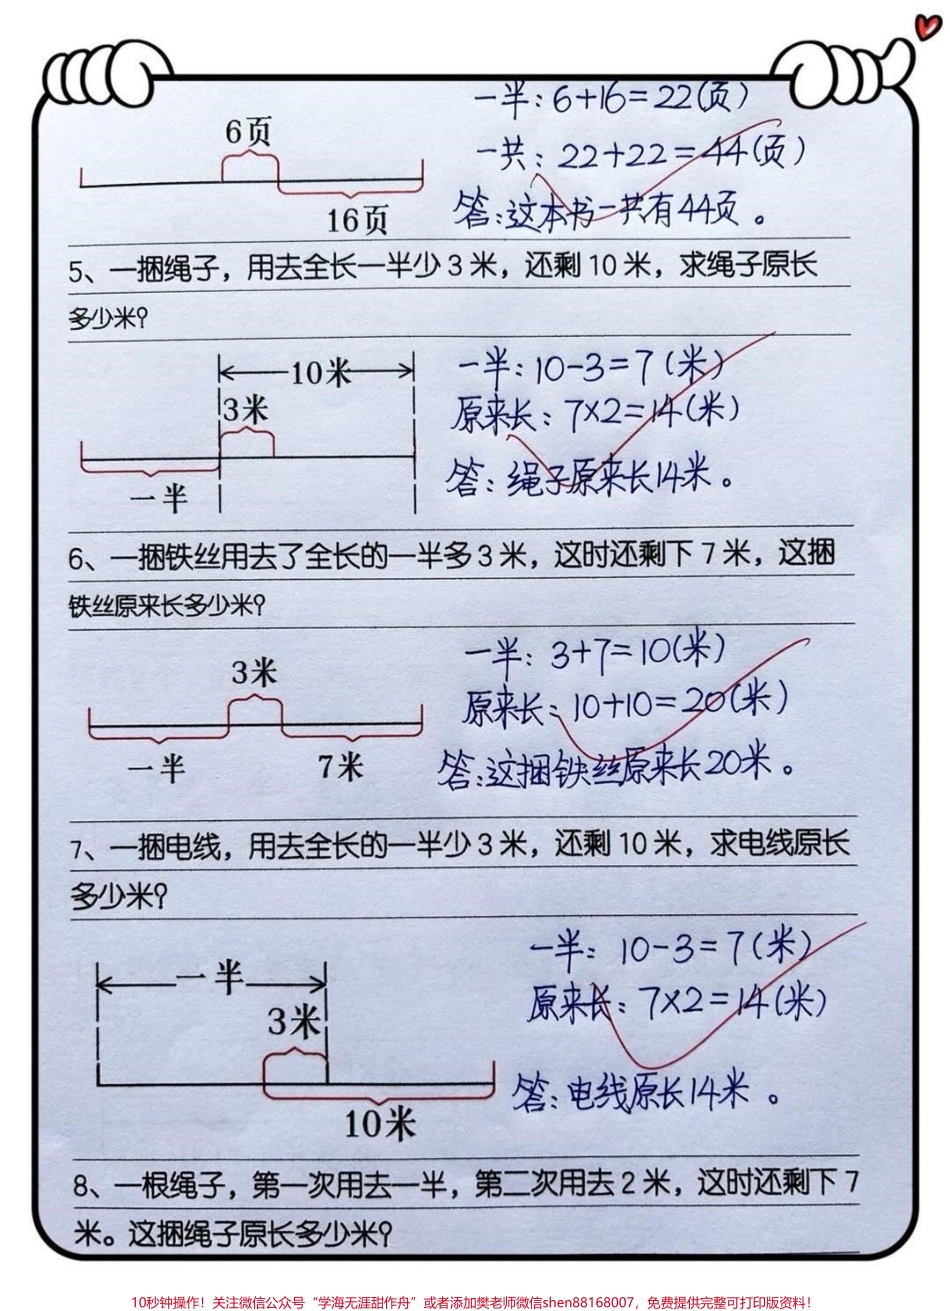 一半：6+16=22(页)
6页
一共：22+22=44(页)
16页
答：这本书一共有44页。
5、一捆绳子，用去全长一半少3米，还剩10米，求绳子原长
多少米？
10米
3米
一半
一半：10-3=7(米)
原来长：7×2=14(米)
答：绳子原来长14米。
6、一捆铁丝用去了全长的一半多3米，这时还剩下7米，这捆
铁丝原来长多少米？
3米
一半
7米
一半：3+7=10(米)
原来长：10+10=20(米)
答：这捆铁丝原来长20米。
7、一捆电线，用去全长的一半少3米，还剩10米，求电线原长
多少米？
一半
3米
10米
一半：10-3=7(米)
原来长：7×2=14(米)
答：电线原长14米。
8、一根绳子，第一次用去一半，第二次用去2米，这时还剩下7
米。这捆绳子原长多少米？
10秒钟操作！关注微信公众号“学海无涯甜作舟”或者添加樊老师微信shen88168007，免费提供完整可打印版资料！